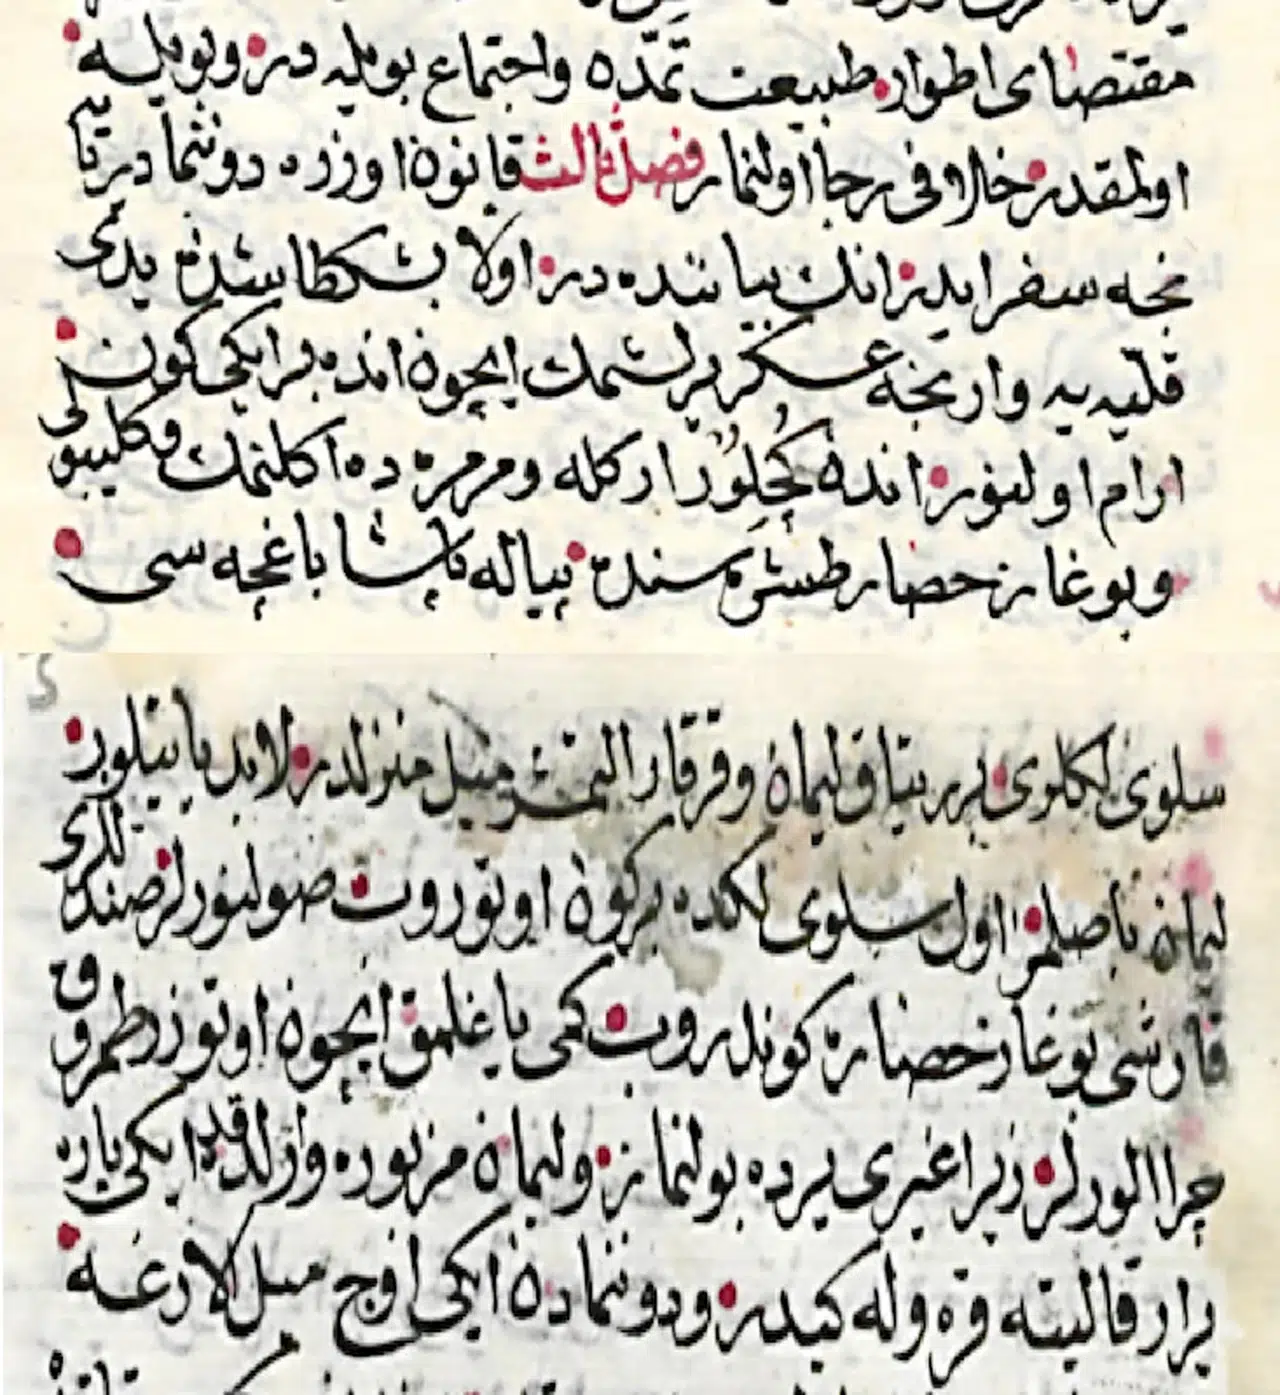 مقتضای اطوار طبیعت تمدّن واجتماع بویله در وبویله
اولمقدر خلافی رجا اولنماز فصل ثالث قانون اوزره دوننما دریایه
نجه سفر ایدر انك بیاننده در اولا بشکطاشدن یدی
قلّیه یه واریجه عسکر یرلشمك ایچون انده بر ایکی کون
ارام اولنور اندن کچلور ارکله ومرمره ده اکلنمك وکلیبولی
وبوغاز حصار طشره سنده پیاله پاشا باغچه سی
سلوی لکلوی لیمان وقرقار التمش میل منزلدر لابد یاتیلور
لیمانه باصلمز اول سلوی لکده بر کون اوتوروب صو لنورلر صندللری
قارشی بوغاز حصاره کوندروب کمی یاغلمق ایچون اوتوز طمروق
چرا الورلر زیرا غیری یرده بولنماز ولیمان مزبوره وارلدقده ایکی پاره
یرار قالیته قره وله کیدر ودوننمادن ایکی اوج میل لارغه